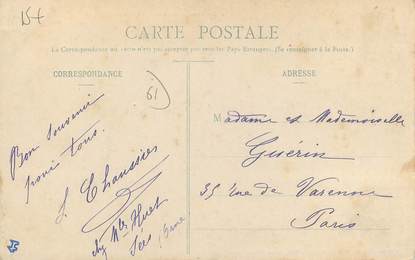 15+
CARTE POSTALE
La Correspondance au recto n'est pas acceptée par tous les Pays Etrangers. (Se renseigner à la Poste.)
CORRESPONDANCE
ADRESSE
61
Bon souvenir
pour tous.
L Chaussier
chez Mr Huet
Sées Orne
Madame et Mademoiselle
Guérin
35 rue de Varenne
Paris